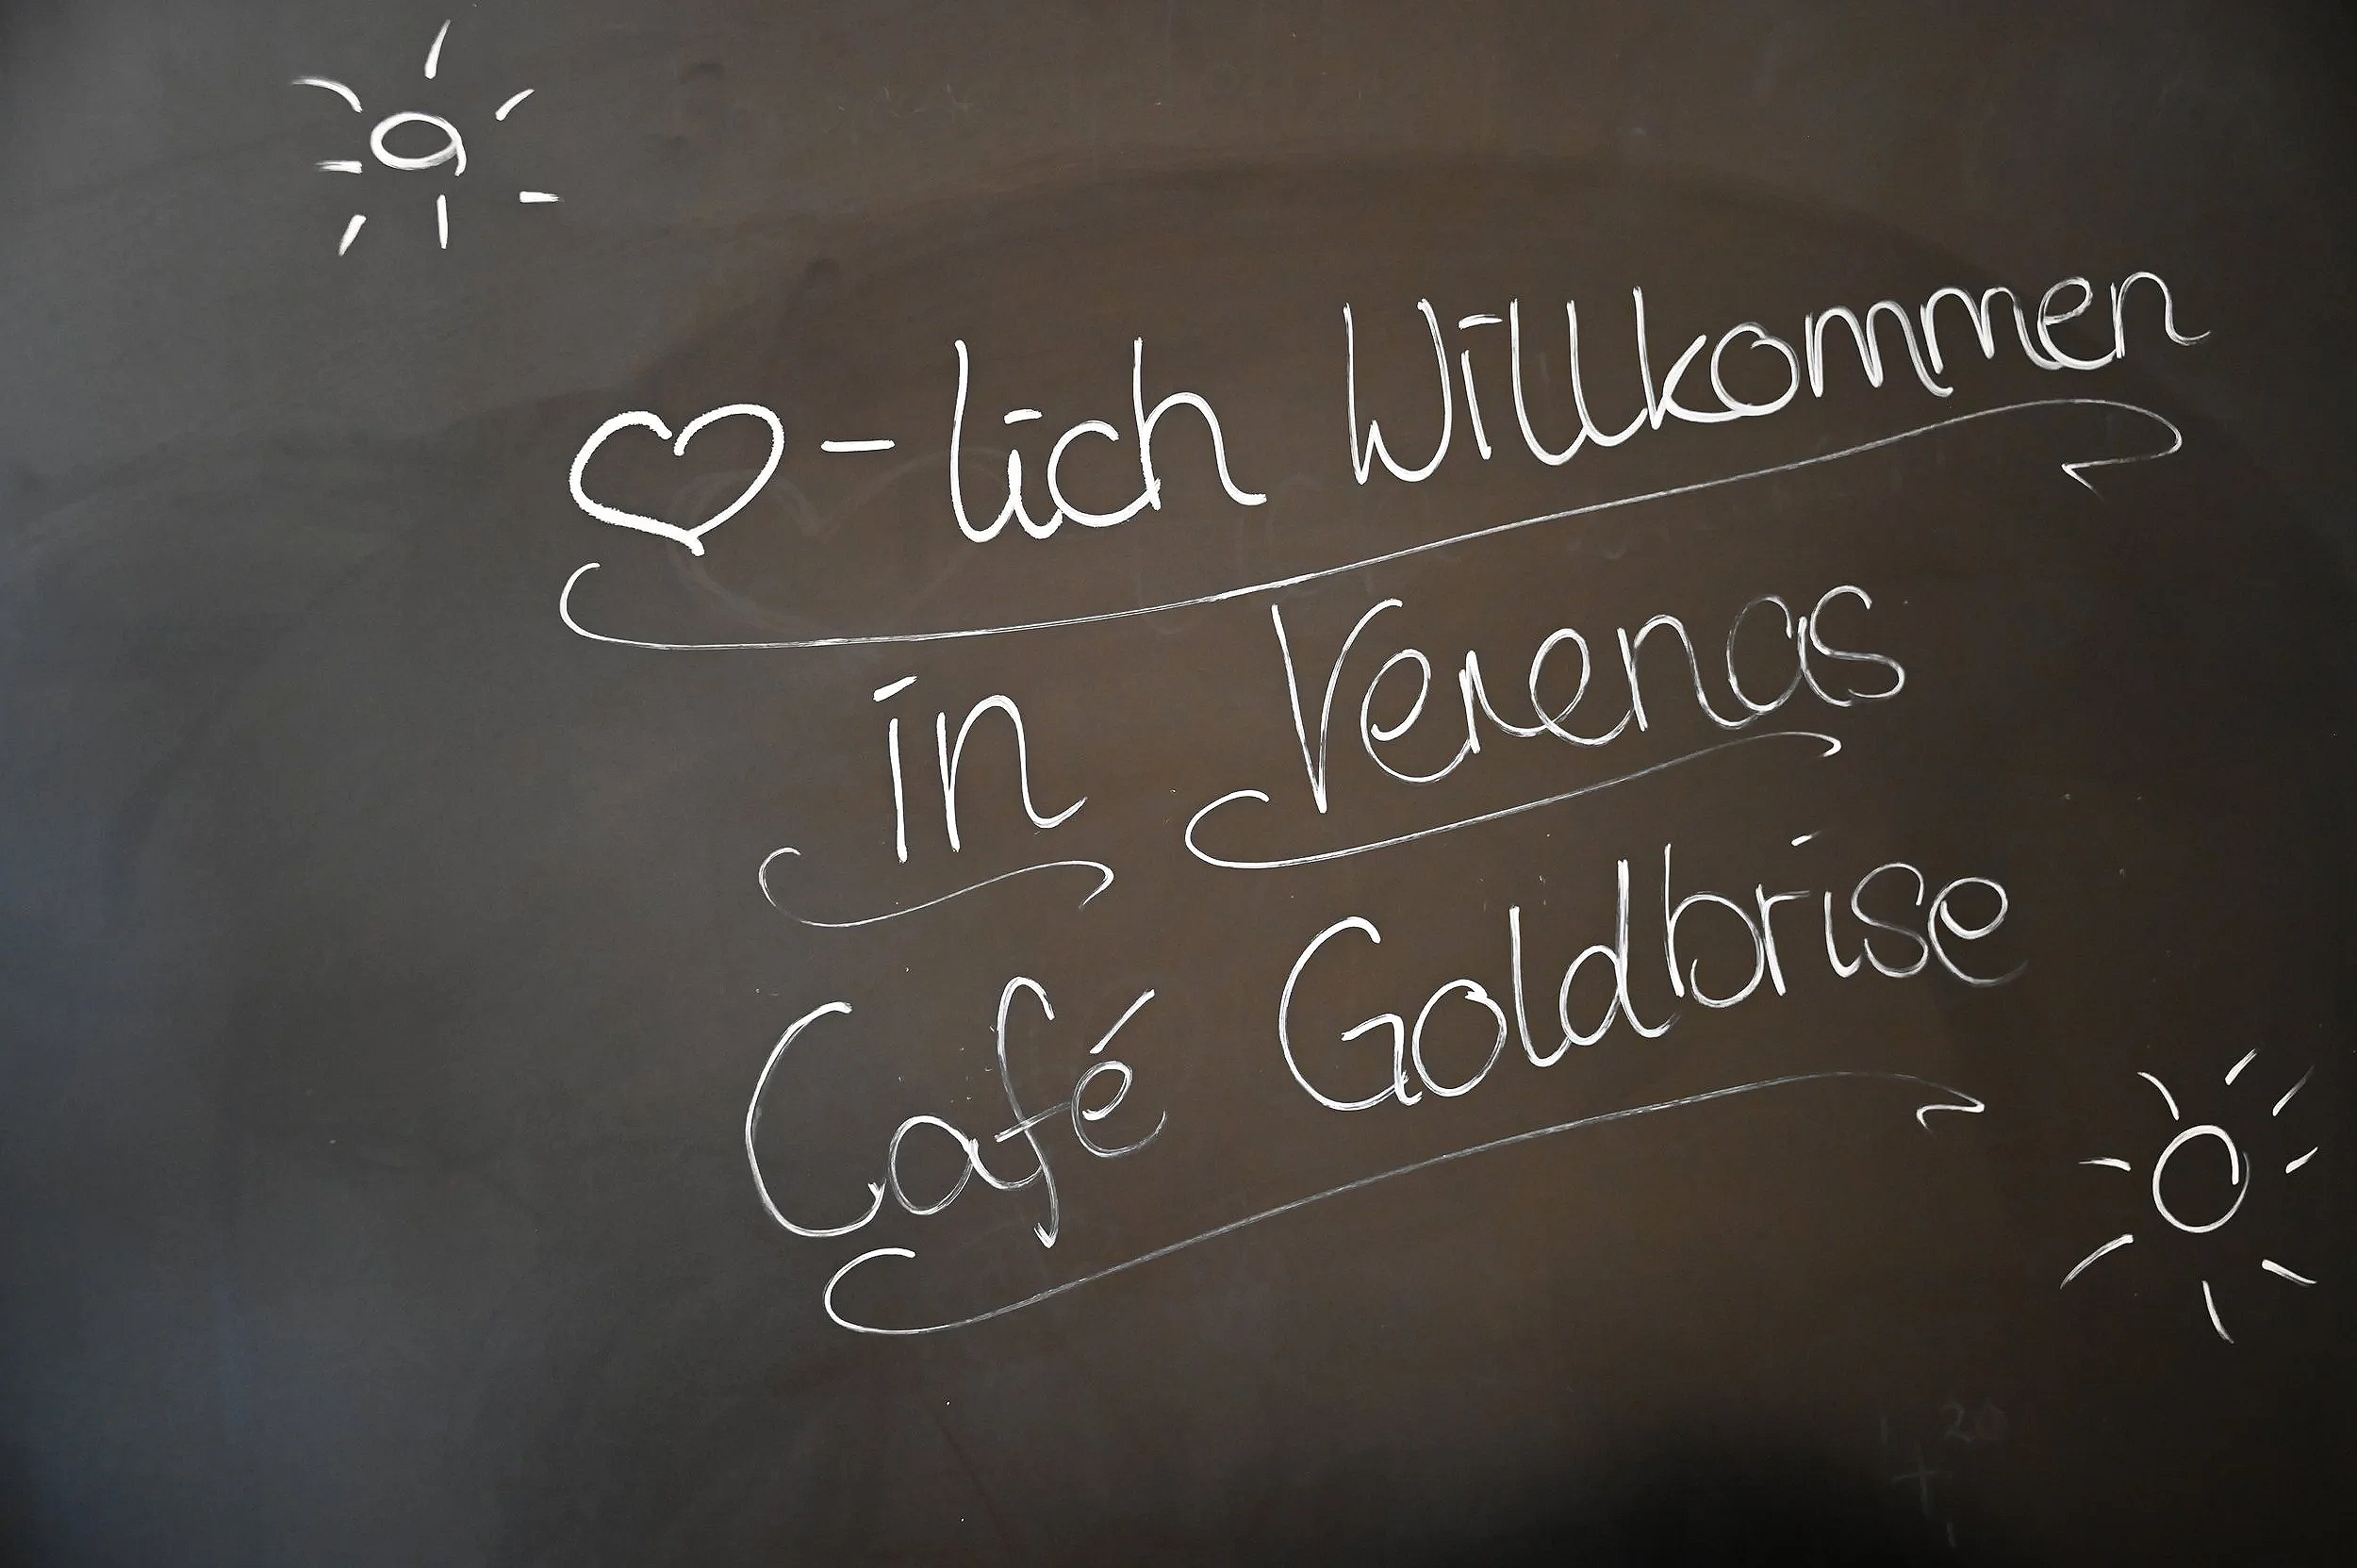 ♡-lich Willkommen
in Verenas
Café Goldbrise